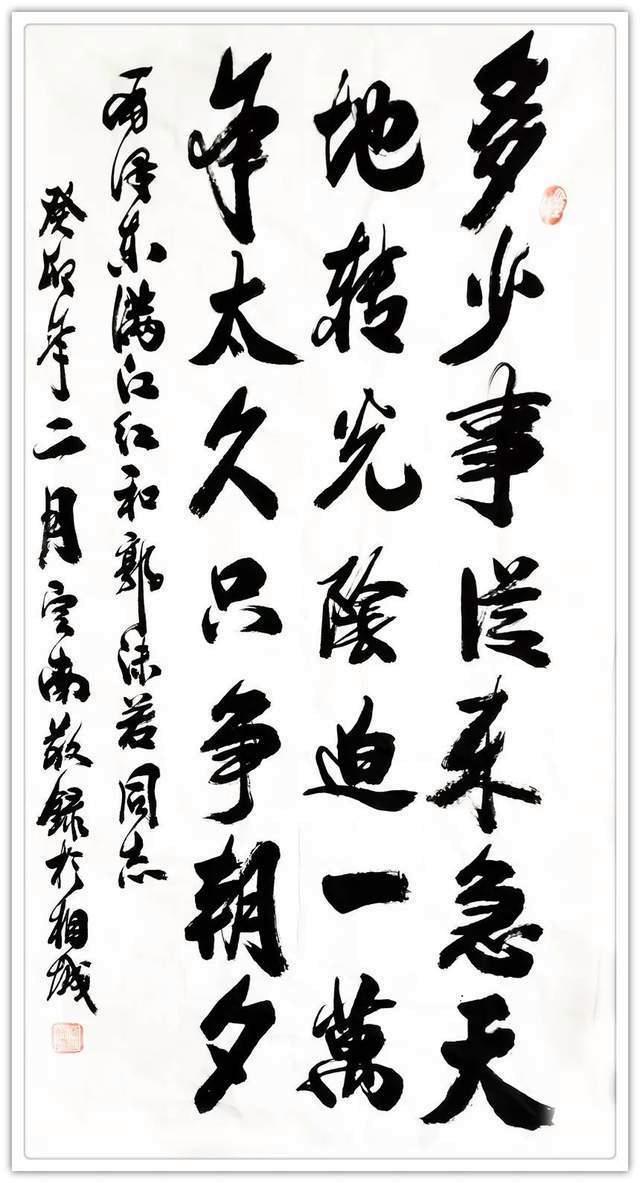 多少事從来急天
地转光陰迫一萬
年太久只争朝夕
毛泽东满江红和郭沫若同志
癸卯年二月云南敬録於相城